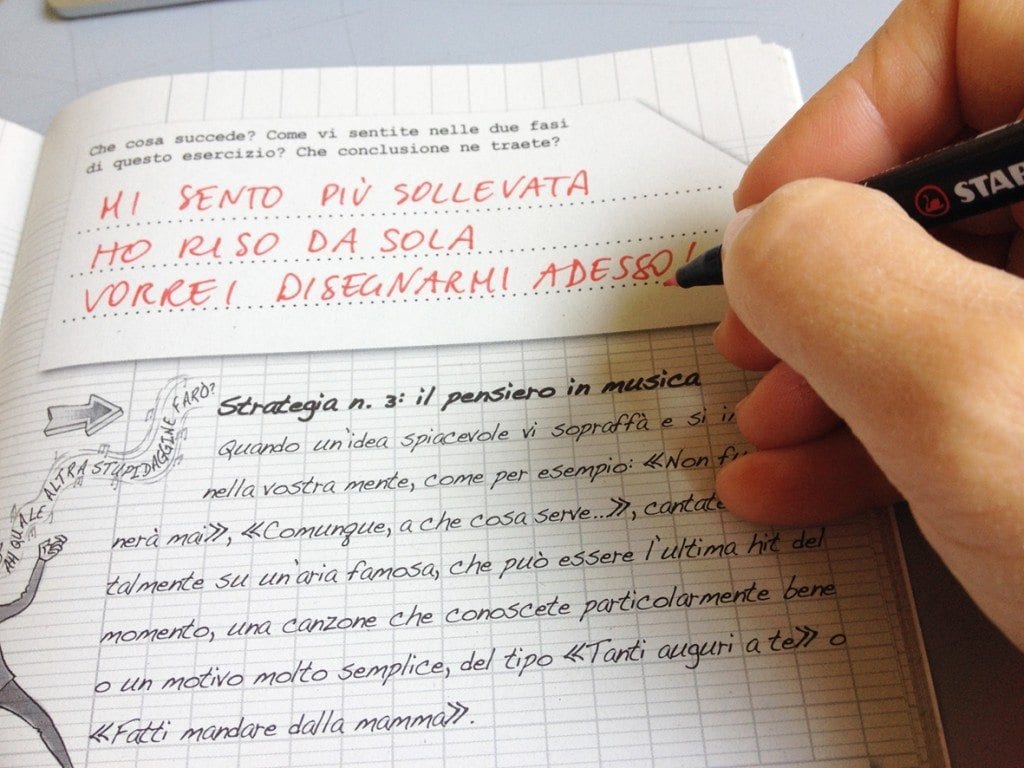 Che cosa succede? Come vi sentite nelle due fasi
di questo esercizio? Che conclusione ne traete?
MI SENTO PIÙ SOLLEVATA
HO RISO DA SOLA
VORREI DISEGNARMI ADESSO!
STAB
AH QUALE ALTRA STUPIDAGGINE FARÒ?
Strategia n. 3: il pensiero in musica
Quando un'idea spiacevole vi sopraffà e si in
nella vostra mente, come per esempio: «Non fu
nerà mai», «Comunque, a che cosa serve...», cantate
talmente su un'aria famosa, che può essere l'ultima hit del
momento, una canzone che conoscete particolarmente bene
o un motivo molto semplice, del tipo «Tanti auguri a te» o
«Fatti mandare dalla mamma».